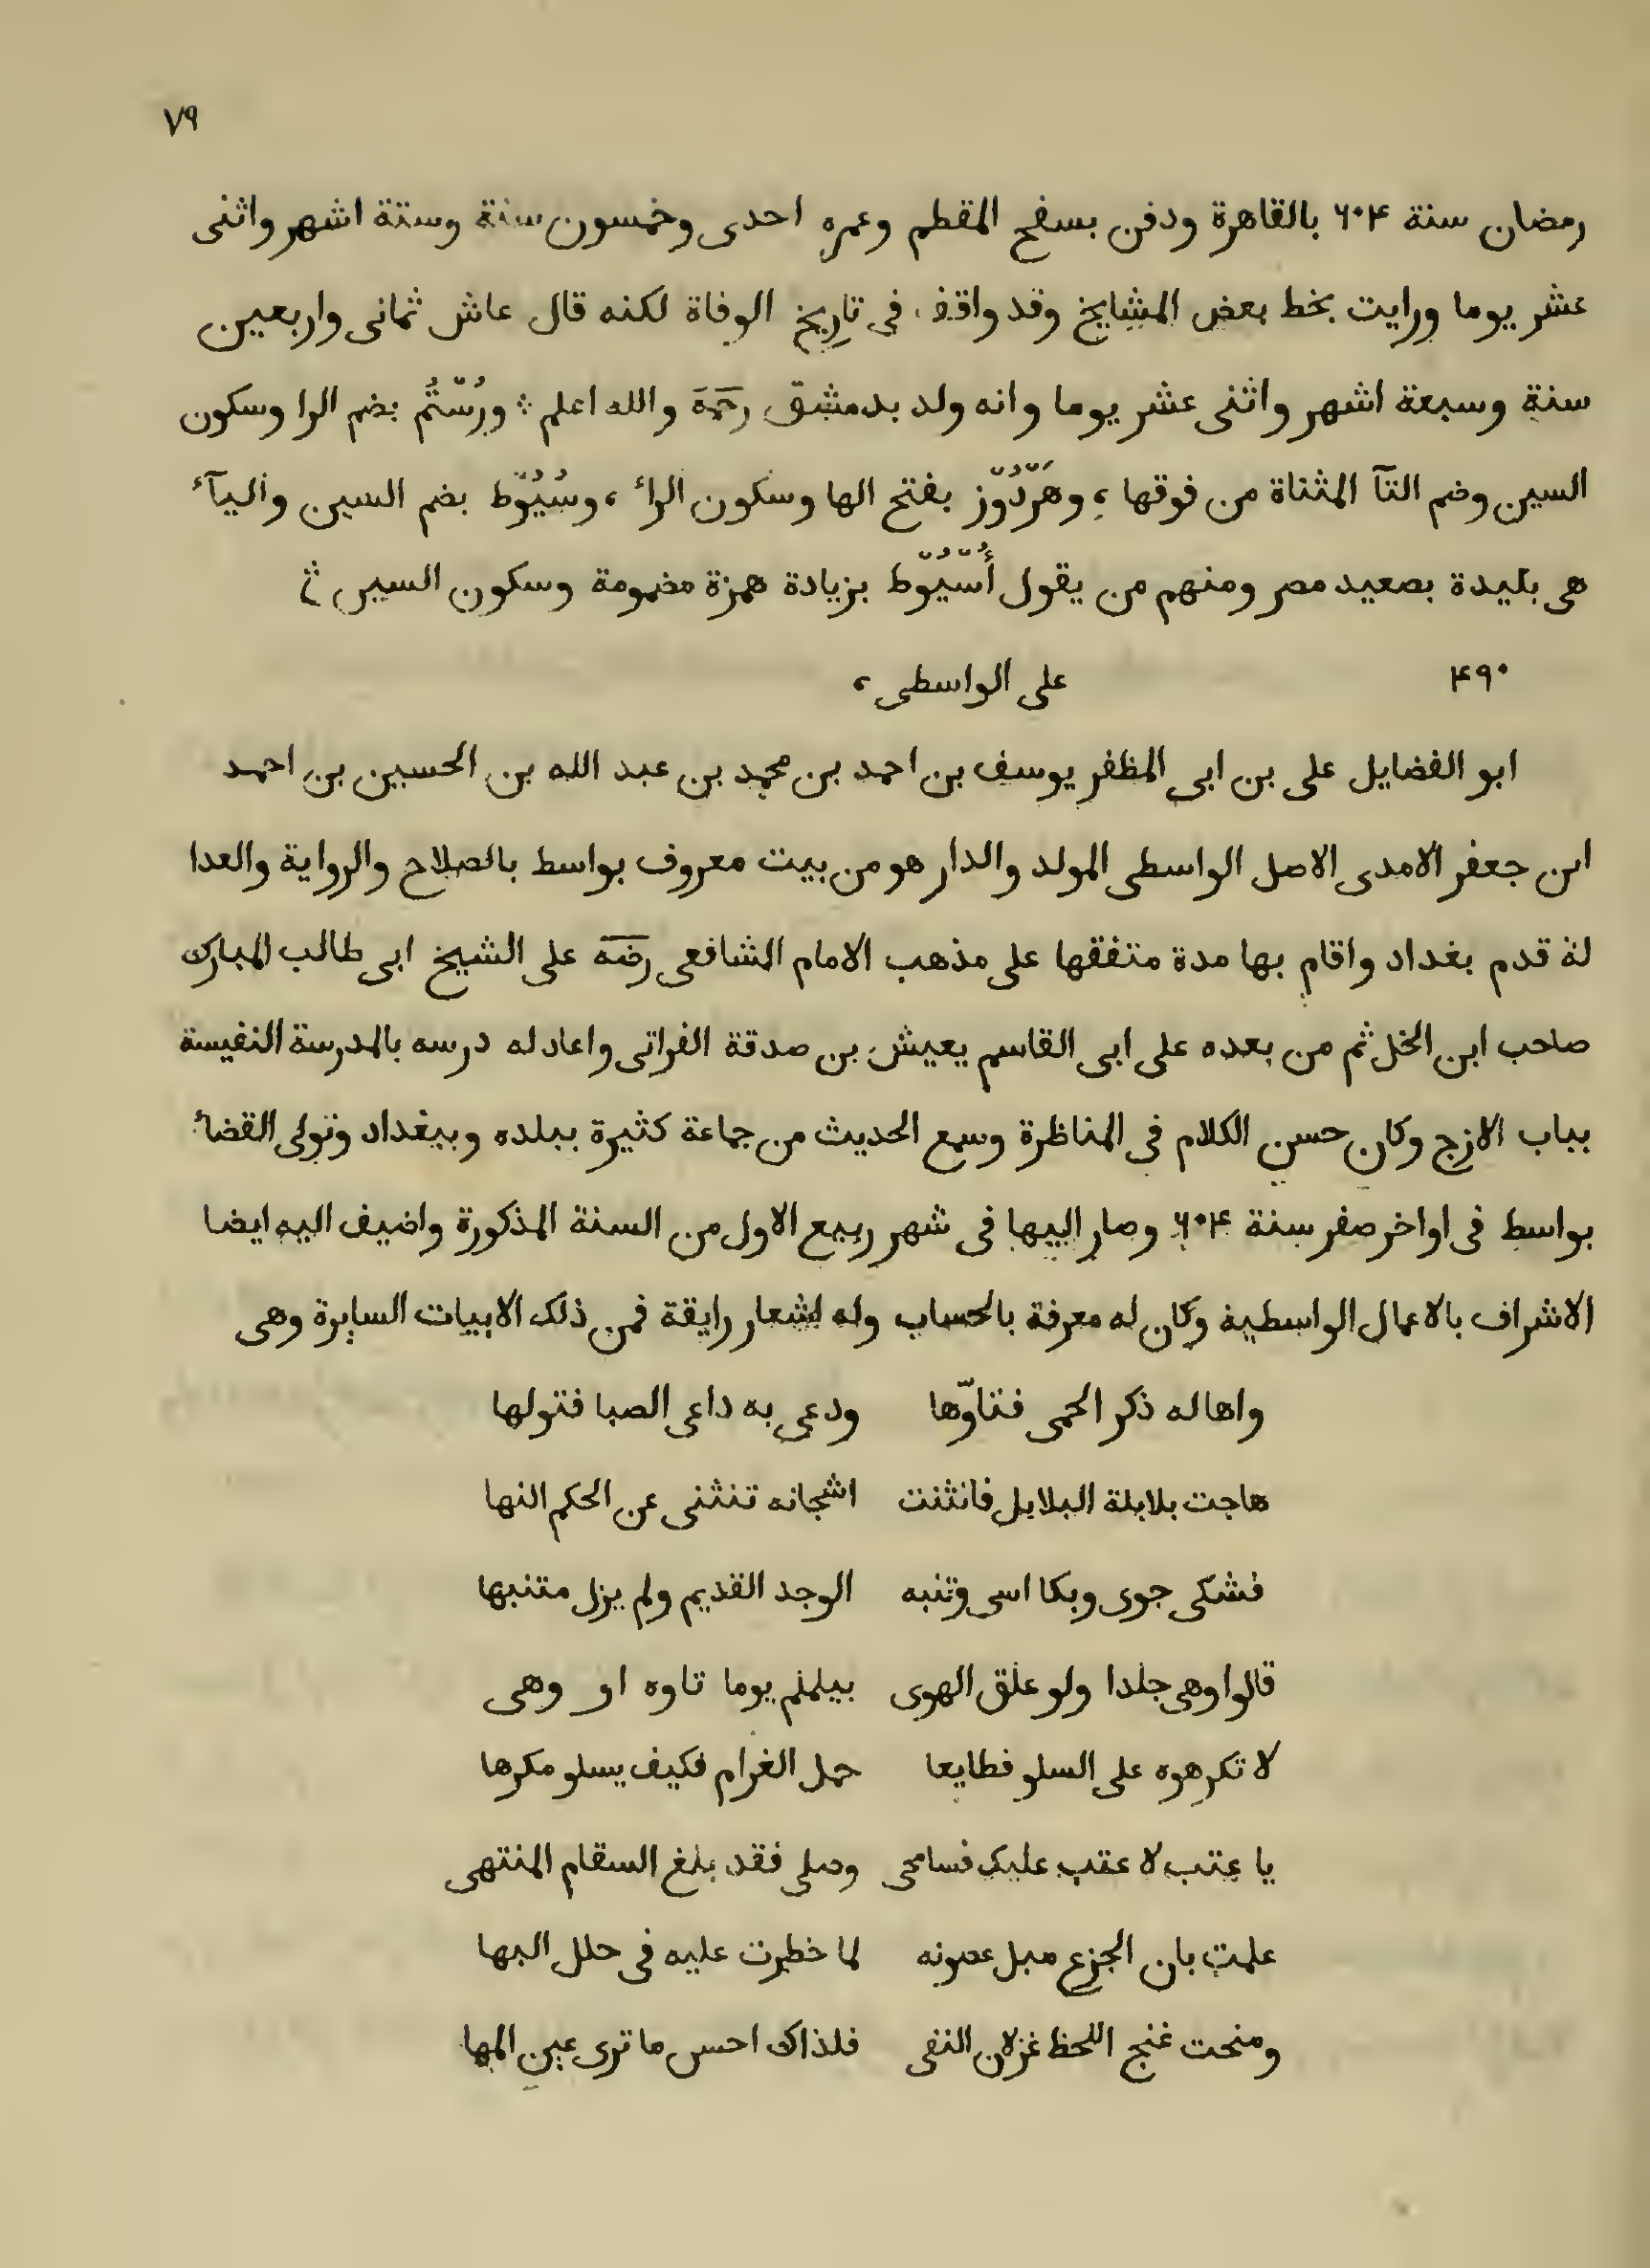 ٧٩
رمضان سنة ٦٠۴ بالقاهرة ودفن بسفح المقطم وعمره احدى وخمسون سنة وستة اشهر واثنى
عشر يوما ورايت بخط بعض المشايخ وقد وافق فى تاريخ الوفاة لكنه قال عاش ثمانى واربعين
سنة وسبعة اشهر واثنى عشر يوما وانه ولد بدمشق رحمة والله اعلم ورُسْتُم بضم الرا وسكون
السين وضم التآ المثناة من فوقها ، وهَرْدُوْز بفتح الها وسكون الراٴ ، وسُيُوْط بضم السين واليآٴ
هى بليدة بصعيد مصر ومنهم من يقول أُسْيُوْط بزيادة همزة مضمومة وسكون السين
۴٩٠ على الواسطى ،
ابو الفضايل على بن ابى المظفر يوسف بن احمد بن محمد بن عبد الله بن الحسين بن احمد
ابن جعفر الامدى الاصل الواسطى المولد والدار هو من بيت معروف بواسط بالصلاح والرواية والعدا
لة قدم بغداد واقام بها مدة متفقها على مذهب الامام الشافعى رضه على الشيخ ابى طالب المبارك
صاحب ابن الخل ثم من بعده على ابى القاسم يعيش بن صدقة الفراتى واعاد له درسه بالمدرسة النفيسة
بباب الازج وكان حسن الكلام فى المناظرة وسمع الحديث من جماعة كثيرة ببلده وببغداد وتولى القضاٴ
بواسط فى اواخر صفر سنة ٦٠۴ وصار اليها فى شهر ربيع الاول من السنة المذكورة واضيف اليه ايضا
الاشراف بالاعمال الواسطية وكان له معرفة بالحساب وله اشعار رايقة فمن ذلك الابيات السايرة وهى
واها له ذكر الحمى فتاوّها ودعى به داعى الصبا فتولها
هاجت بلابلة البلابل فانثنت اشجانه تنثنى عن الحكم النها
فشكى جوى وبكا اسى وتنبه الوجد القديم ولم يزل متنبها
قالوا وهى جلدا ولو علق الهوى بيلملم يوما تاوه او وهى
لا تكرهوه على السلو فطايعا حمل الغرام فكيف يسلو مكرها
يا عتب لا عتب عليك فسامحى وصلى فقد بلغ السقام المنتهى
علمت بان الجزع ميل غصونه لما خطرت عليه فى حلل البها
ومنحت غنج اللحظ غزلان النقى فلذاك احسن ما ترى عين المها